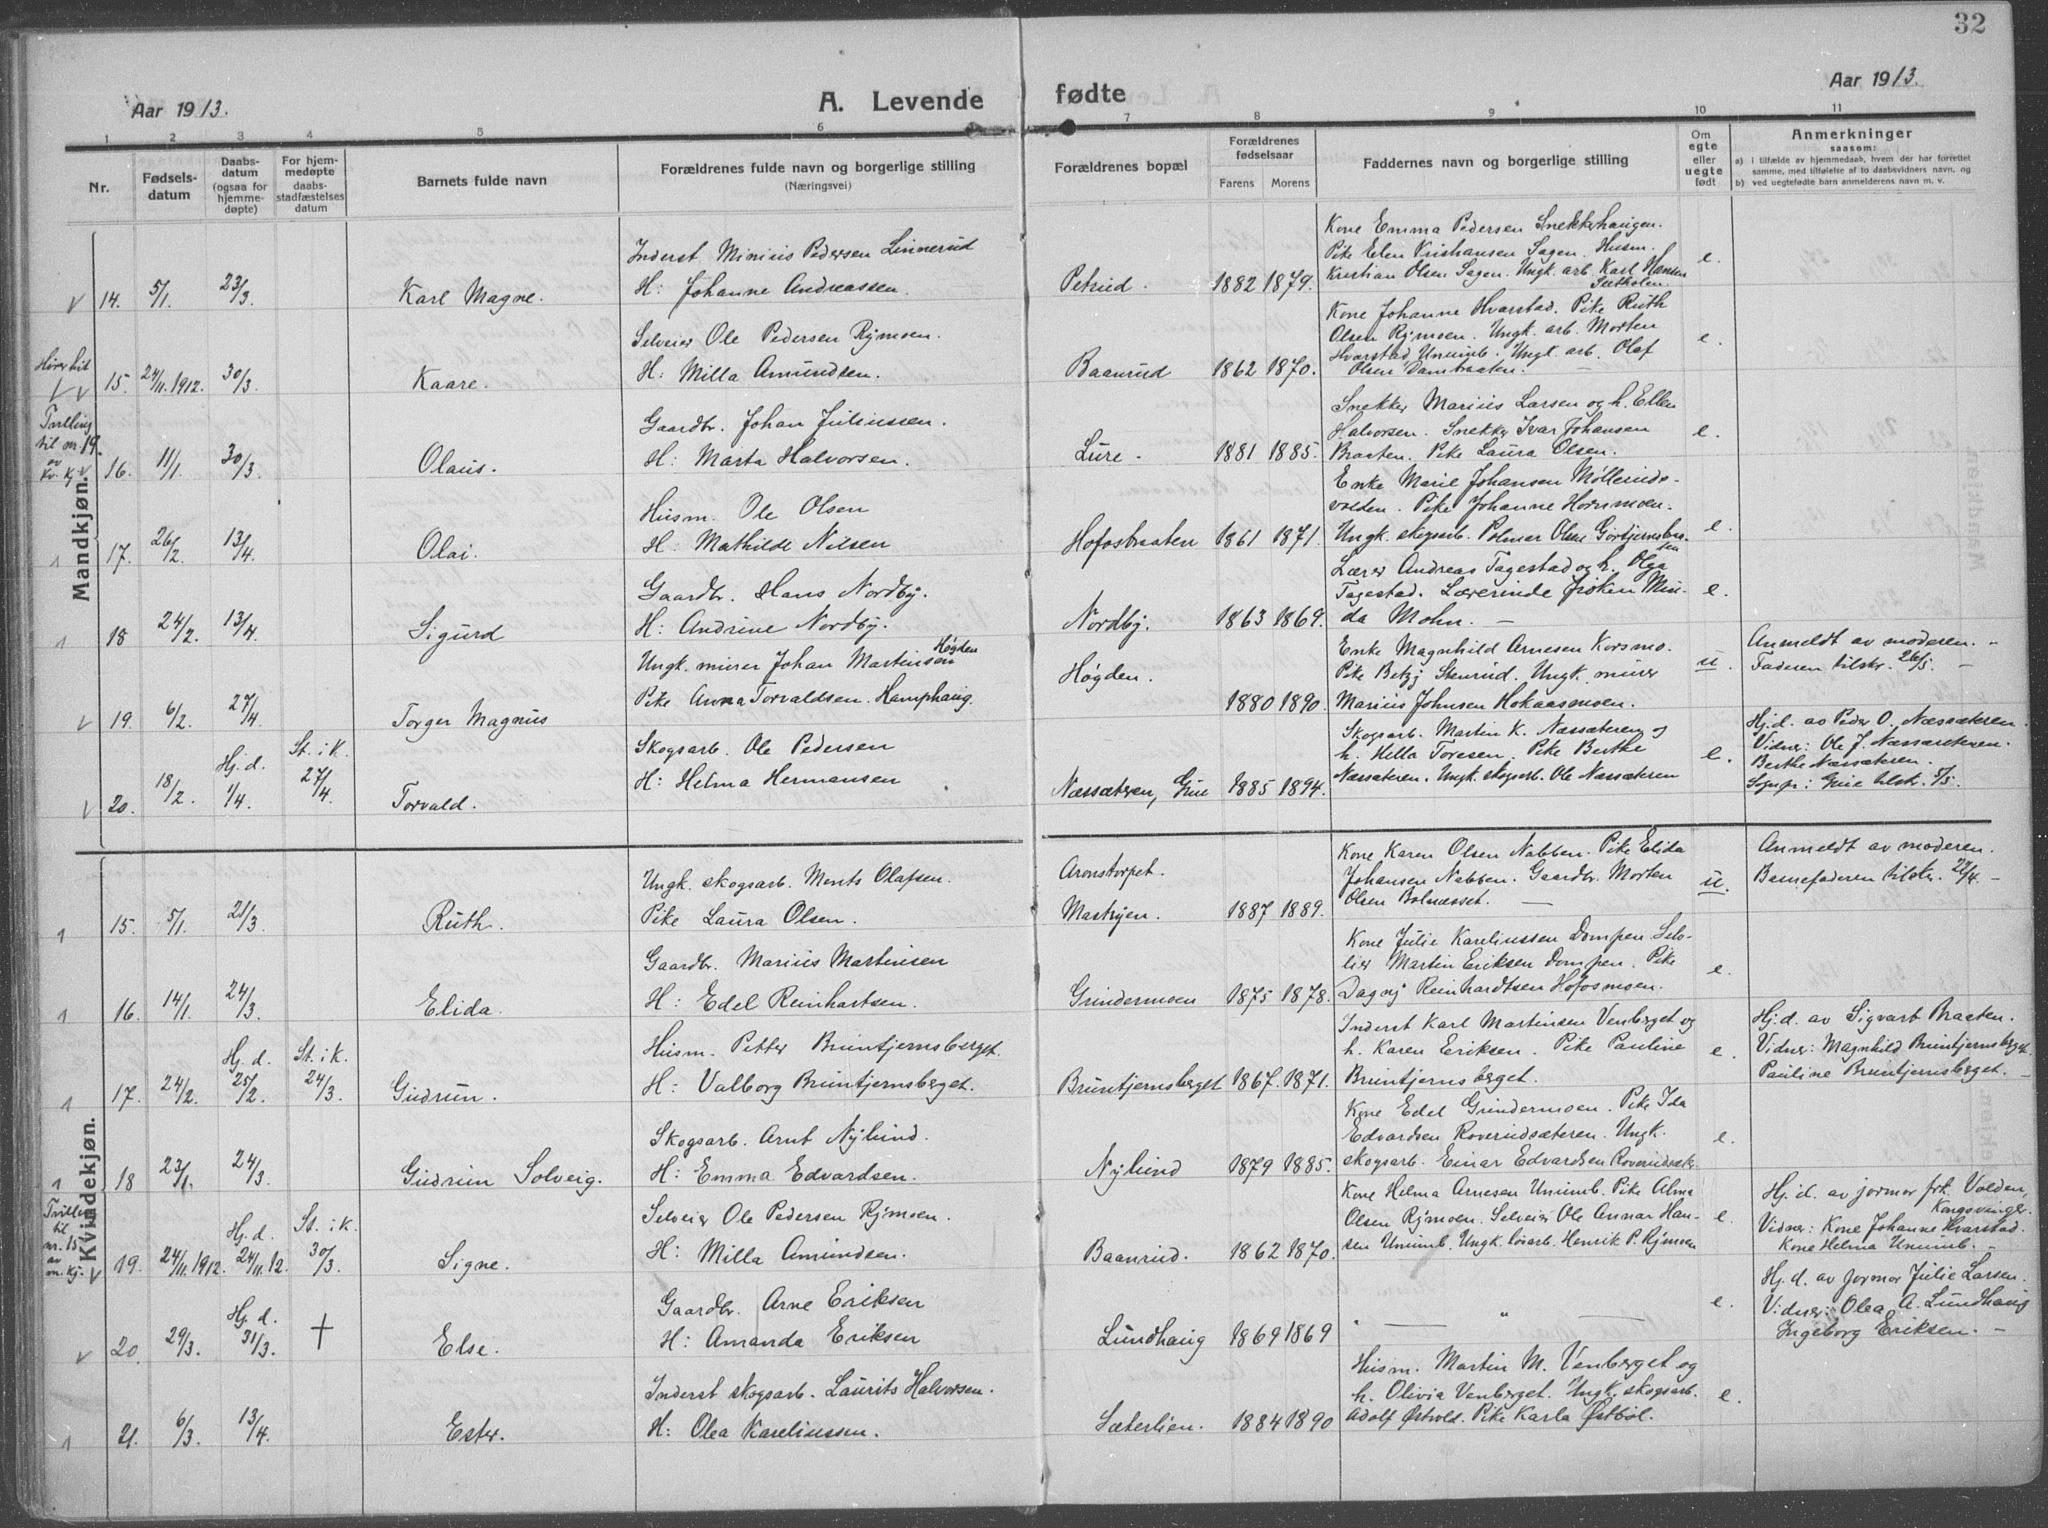 32
Aar 1913.
A. Levende
fødte
Aar 1913.
1 2 3 4 5 6 7 8 9 10 11
Nr.
Fødsels-
datum
Daabs-
datum
(ogsaa for
hjemme-
døpte)
For hjem-
medøpte
daabs-
stadfæstelses
datum
Barnets fulde navn
Forældrenes fulde navn og borgerlige stilling
(Næringsvei)
Forældrenes bopæl
Forældrenes
fødselsaar
Farens Morens
Faddernes navn og borgerlige stilling
Om
egte
eller
uegte
født
Anmerkninger
saasom:
a) i tilfælde av hjemmedaab, hvem der har forrettet
samme, med tilføielse af to daabsvidners navn, og
b) ved uegtefødte barn anmelderens navn m. v.
Mandkjøn.
Inderst Minius Pedersen Linnerud
Kone Emma Pedersen Snekkerhaugen.
Pike Elen Kristiansen Sagen. Husm.
14. 5/1. 23/3 Karl Magne. H: Johanne Andreassen. Petrud. 1882 1879. Kristian Olsen Sagen. Ungk. arb. Karl Hansen e.
Selveier Ole Pedersen Rymoen.
Kone Johanne Hvarstad. Pike Ruth
Olsen Rymoen. Ungk. arb. Morten
15. 24/11.1912. 30/3. Kaare. H: Milla Amundsen. Baanrud 1862 1870. Hvarstad, Unumb. Ungk. arb. Olaf e.
Olsen Dambraaten.
Tvilling
til nr. 19
av
kv. kj.
Gaardbr. Johan Juliussen.
Snekker Marius Larsen og h. Ellen
Halvorsen. Snekker Ivar Johansen
16. 11/1. 30/3. Olaus. H: Marta Halvorsen. Lure. 1881 1885. Braaten. Pike Laura Olsen. e.
Husm. Ole Olsen
Enke Marie Johansen Mølleruds-
volden. Pike Johanne Hornmoen.
17. 26/2. 13/4. Olai. H: Mathilde Nilsen Hofosbraaten 1861 1871. Ungk. skogsarb. e.
Gaardbr. Hans Nordby.
Lærer Andreas Tagestad og h. Olga
Tagestad. Lærerinde frøken Min-
18 24/2. 13/4. Sigurd H: Andrine Nordby. Nordby. 1863 1869. da Mohn. e.
Ungk. murer Johan Martinsen Høgden
Høgden.
Enke Magnhild Arnesen Korsmo.
Pike Betzy Stenrud. Ungk. murer
u.
Anmeldt av moderen.
Faderen tilskr. 26/5.
19. 6/2. 27/4. Torger Magnus Pike Anna Torvaldsen. Hamphaug. 1880 1890. Marius Johnsen Hokaasmoen.
Hj.d. St. i K.
Skogsarb. Ole Pedersen
Skogsarb. Martin K. Næssæteren og
h. Hella Toresen. Pike Berthe
Hj.d. av Peder O. Næssæteren.
Vidner: Ole J. Næssæteren.
Berthe Næssæteren.
20. 18/2. 1/4. 27/4. Torvald. H: Helma Hermansen Næssæteren, Grue 1885 1894. Næssæteren. Ungk. skogsarb. Ole Næssæteren e.
Sognpr: Grue tilskr. 7/5.
Kvindekjøn.
Ungk. skogsarb. Ments Olafsen.
Aronstorpet.
Kone Karen Olsen Nabben. Pike Elida
Johansen Nabben. Gaardbr. Morten
u.
Anmeldt av moderen.
Barnefaderen tilskr. 22/4.
15. 5/1. 21/3. Ruth. Pike Laura Olsen. Mastryen. 1887 1889. Olsen Bolnæsset.
Gaardbr. Marius Martinsen
Kone Julie Kareliussen Dompen. Selv-
eier Martin Eriksen Dompen. Pike
16. 14/1. 24/3. Elida. H: Edel Reinhartsen. Grindermoen 1875 1878. Dagny Reinhardtsen Hofosmoen. e.
Hj.d. St. i k.
Husm. Petter Bruntjernsberget.
Inderst Karl Martinsen Venberget og
h. Karen Eriksen. Pike Pauline
Hj.d. av Sigvart Braaten.
Vidner: Magnhild Bruntjernsberget.
17. 24/2. 25/2. 24/3. Gudrun. H: Valborg Bruntjernsberget. Bruntjernsberget 1867. 1871. Bruntjernsberget. e.
Pauline Bruntjernsberget.
Skogsarb. Arnt Nylund.
Kone Edel Grindermoen. Pike Ida
Edvardsen Roverudsæteren. Ungk.
18 23/1. 24/3. Gudrun Solveig. H: Emma Edvardsen. Nylund 1879 1885. skogsarb. Einar Edvardsen Roverudsæt. e.
Tvilling
til
nr. 15
av
m. kj.
Hj.d. St. i k.
Selveier Ole Pedersen Rymoen.
Kone Helma Arnesen Unumb. Pike Alma
Olsen Rymoen. Selveier Ole Annar Han-
Hj.d. av jormor frk. Volden,
Kongsvinger.
Vidner: Kone Johanne Hvarstad.
Kone Helma Unumb.
19. 24/11.1912. 24/11.12. 30/3. Signe. H: Milla Amundsen. Baanrud. 1862 1870. sen Unumb. Ungk. løsarb. Henrik P. Rymoen e.
Hj.d.
Gaardbr. Arne Eriksen
Hj.d. av jormor Julie Larsen.
Vidner: Olea A. Lundhaug
20. 29/3. 31/3. † Else. H: Amanda Eriksen Lundhaug 1869 1869 e.
Ingeborg Eriksen.
Inderst skogsarb. Laurits Halvorsen.
Husm. Martin M. Venberget og
h. Olivia Venberget. Ungk. skogsarb.
21. 6/3. 13/4. Ester. H: Olea Kareliussen. Sæterlien. 1884 1890 Adolf Østvold. Pike Karla Østbøl. e.